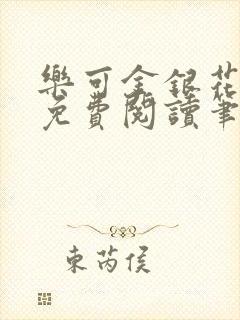 樂可金銀花
免費閱讀筆
東芮侯